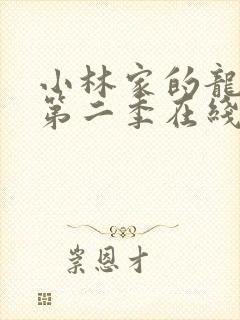 小林家的龍
第二季在綫
崇恩才